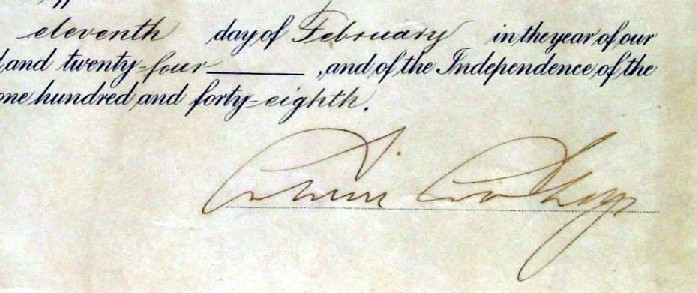 eleventh day of February in the year of our
and twenty-four , and of the Independence of the
one hundred and forty-eighth.
Calvin Coolidge